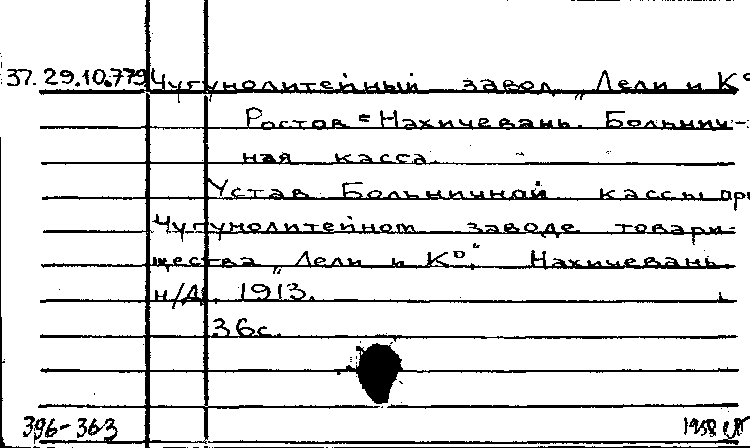 37.29.10.779 Чугунолитейный завод „Лели и К°
Ростов = Нахичевань. Больнич-
ная касса.
Устав Больничной кассы при
Чугунолитейном заводе товари-
щества „Лели и К°." Нахичевань
н/Д. 1913.
36с.
396-363 1958